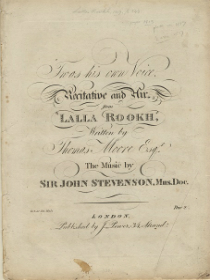 'Twas his own Voice,
Recitative and Air,
from
LALLA ROOKH,
Written by
Thomas Moore Esqr.
The Music by
SIR JOHN STEVENSON, Mus. Doc.
LONDON,
Published by J. Power, 34, Strand